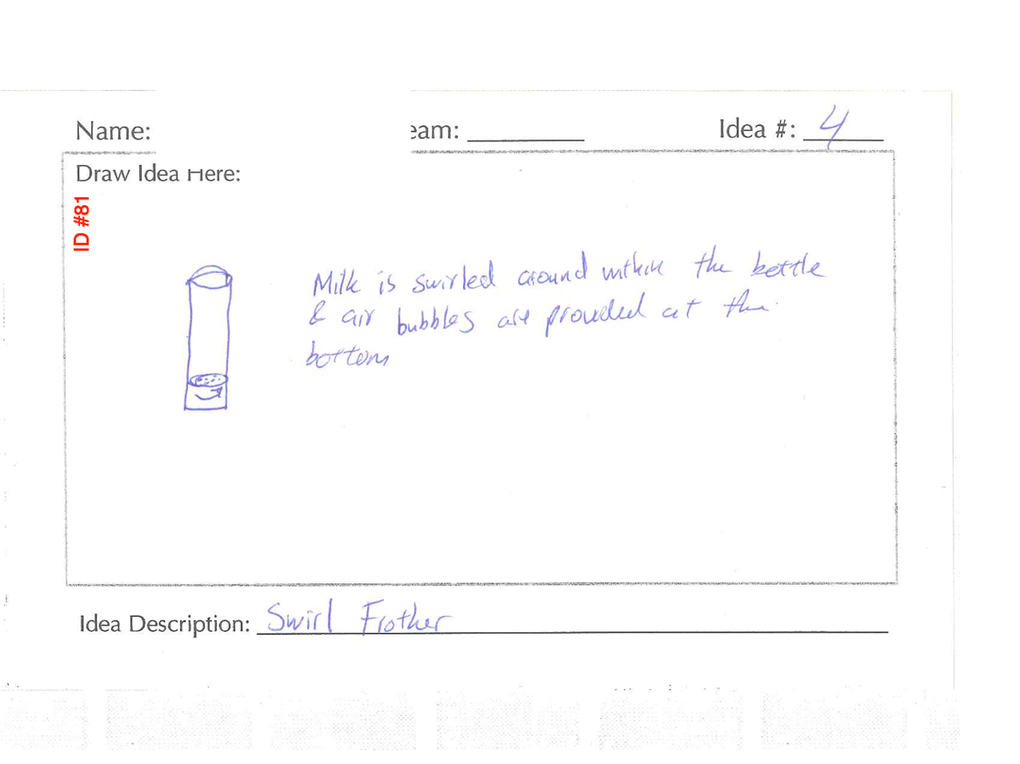 Name:
eam:
Idea #: 4
Draw Idea Here:
ID #81
Milk is swirled around within the bottle
& air bubbles are provided at the
bottom
Idea Description: Swirl Frother